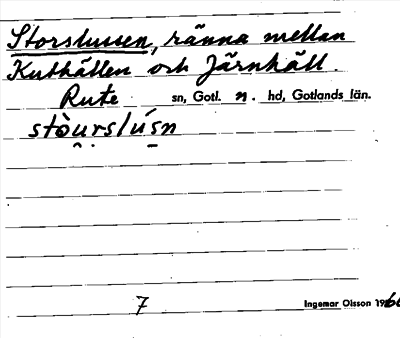 Storslussen, ränna mellan
Kuthällen och Järnhäll.
Rute sn, Gotl. n. hd, Gotlands län.
stò̯u̯rslú̱sn
7 Ingemar Olsson 1966